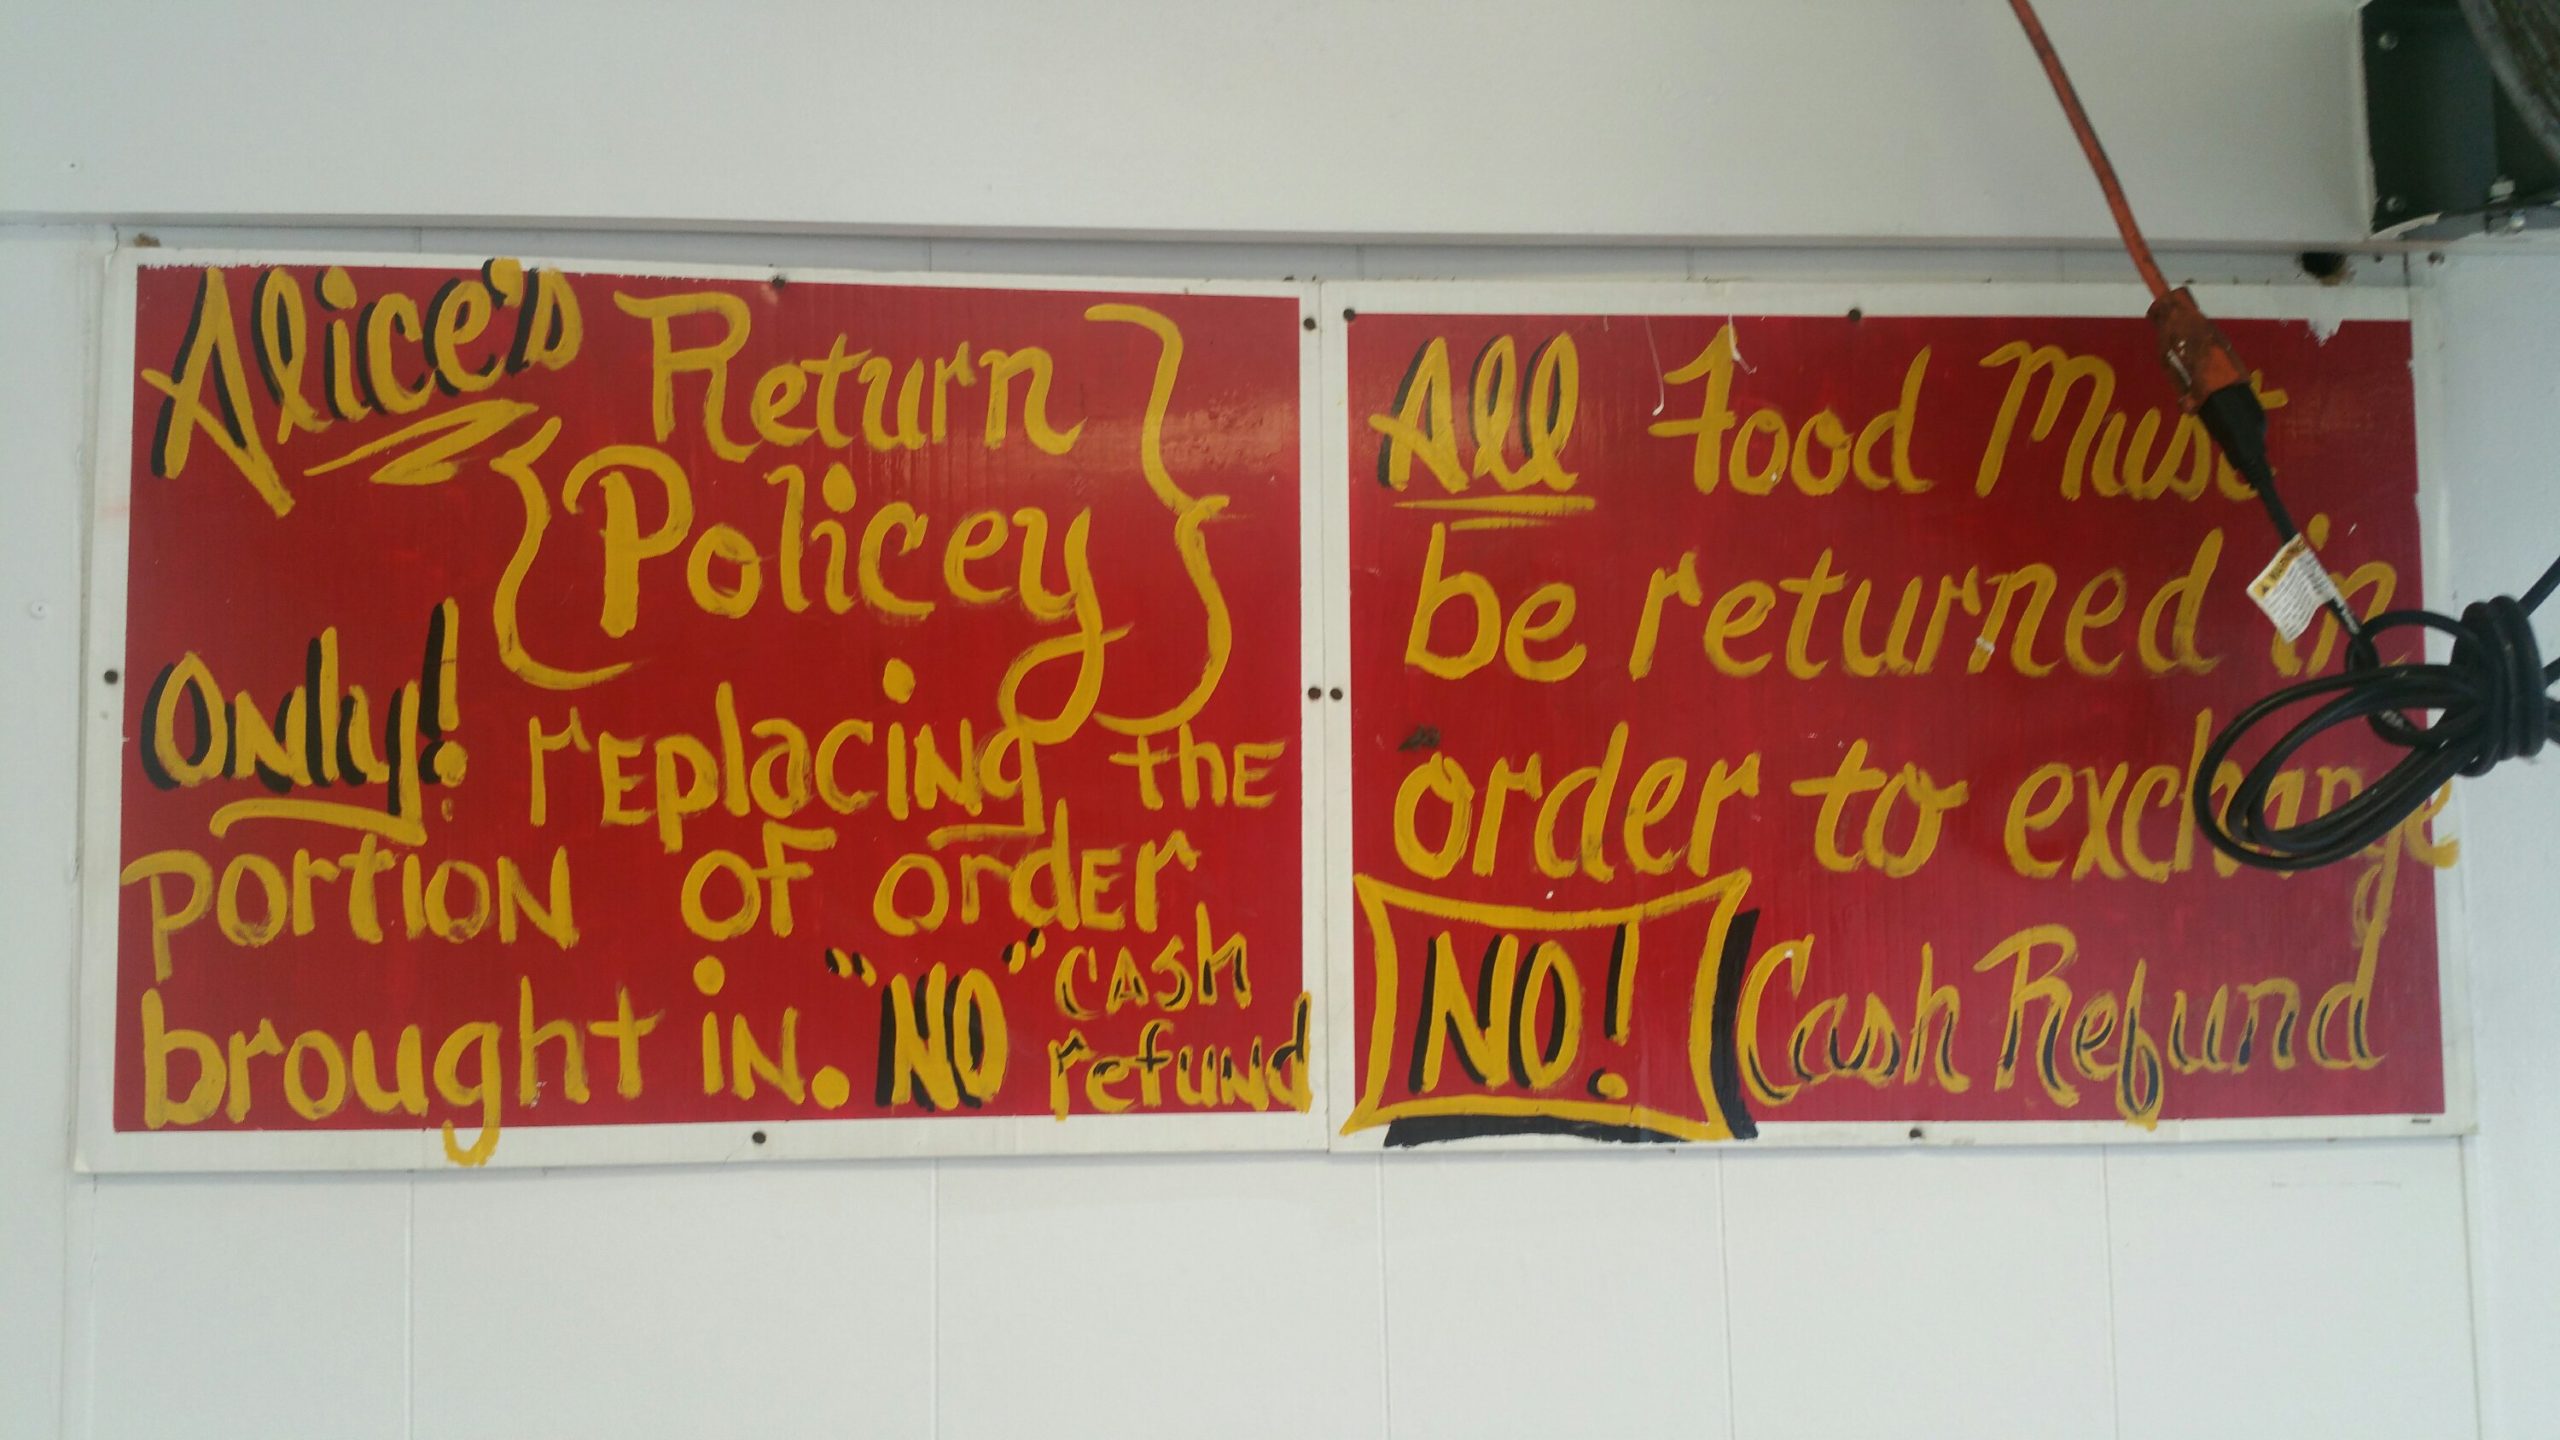 Alice's Return
{Policey}
Only! replacing the
portion of order
brought in. "NO" cash
refund
All Food Must
be returned in
order to exchange
NO! Cash Refund